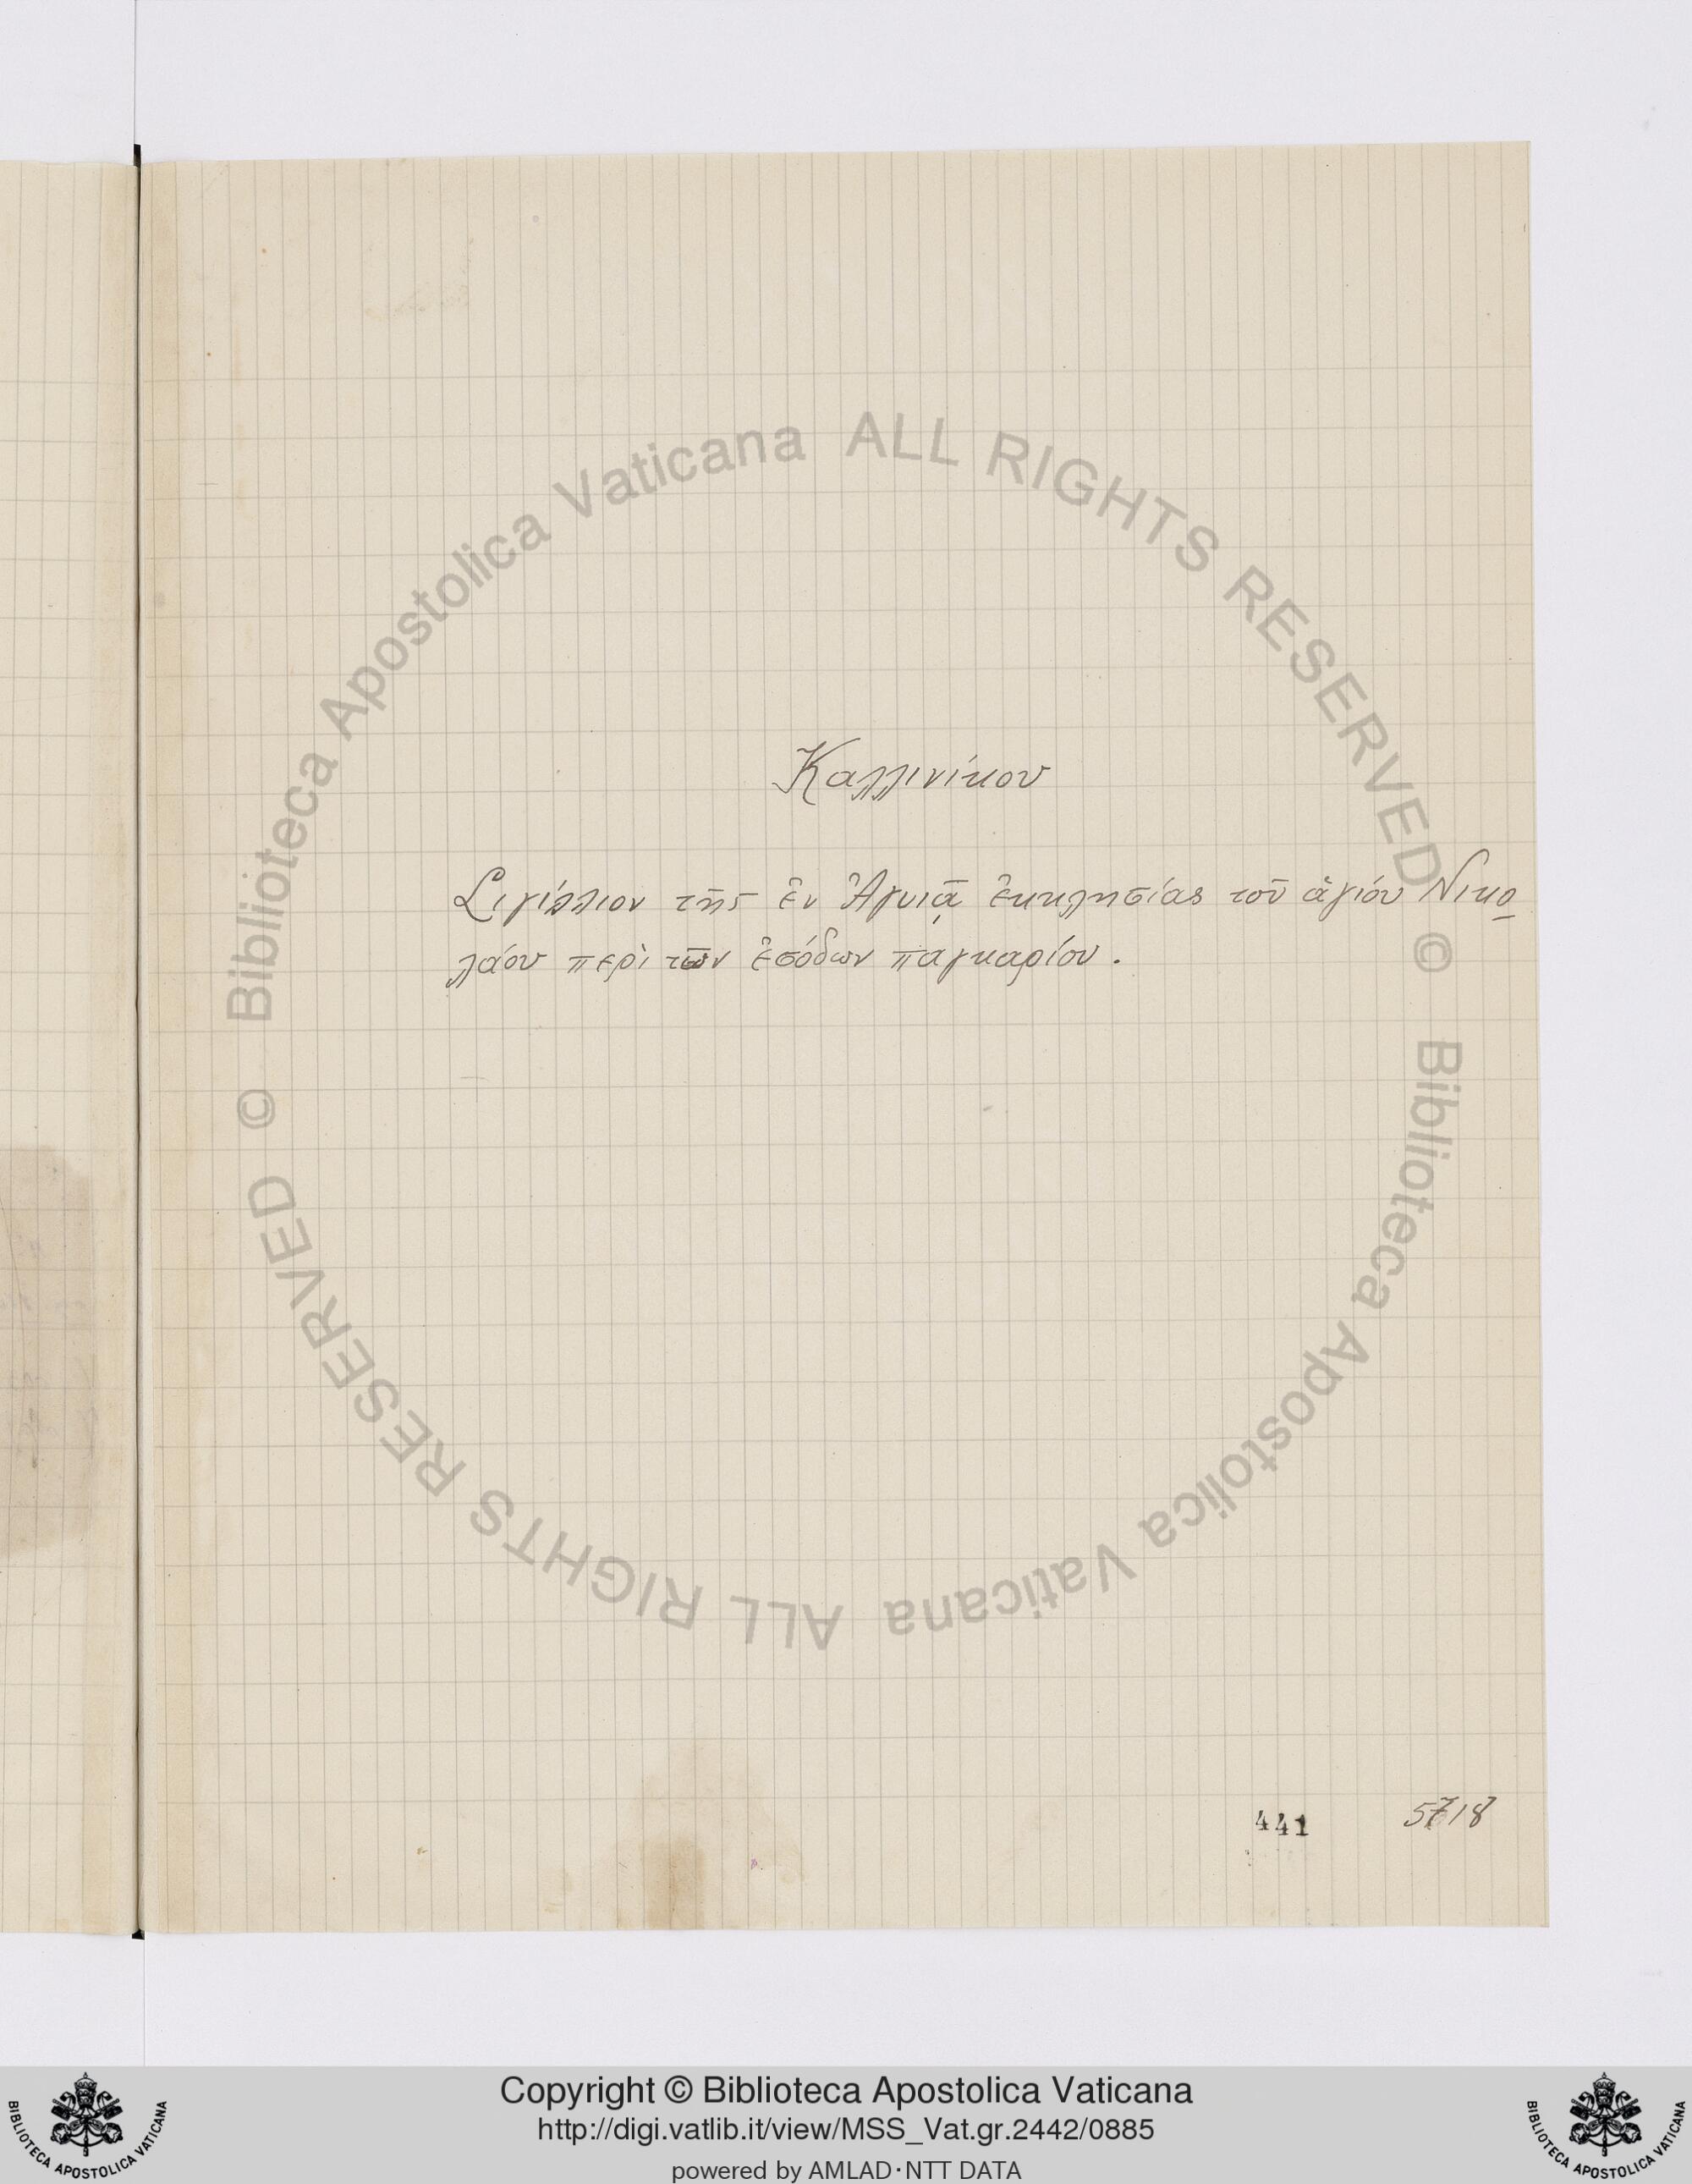 Καλλινίκου
Σιγίλλιον τῆς ἐν Ἀγυιᾷ ἐκκλησίας τοῦ ἁγιόυ Νικο
λάου περὶ τῶν ἐσόδων παγκαρίου .
441 5718
Biblioteca Apostolica Vaticana ALL RIGHTS RESERVED ©
Biblioteca Apostolica Vaticana ALL RIGHTS RESERVED ©
Copyright © Biblioteca Apostolica Vaticana
http://digi.vatlib.it/view/MSS_Vat.gr.2442/0885
powered by AMLAD·NTT DATA
BIBLIOTECA APOSTOLICA VATICANA
BIBLIOTECA APOSTOLICA VATICANA